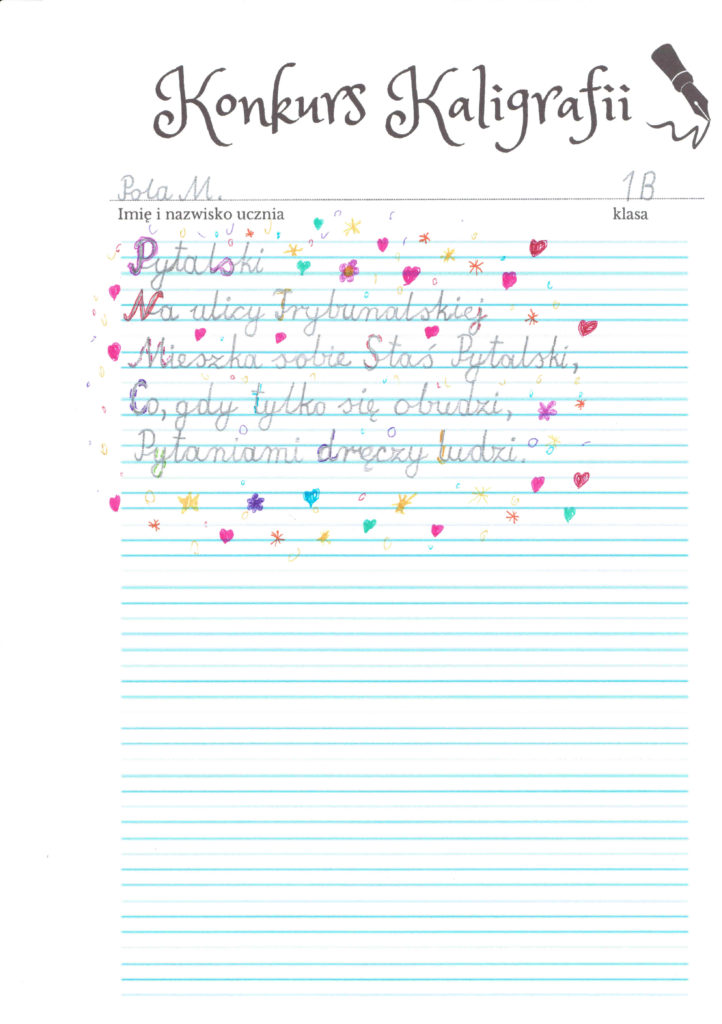 Konkurs Kaligrafii
Pola M. 1B
Imię i nazwisko ucznia klasa
Pytalski
Na ulicy Trybunalskiej
Mieszka sobie Staś Pytalski,
Co, gdy tylko się obudzi,
Pytaniami dręczy ludzi.